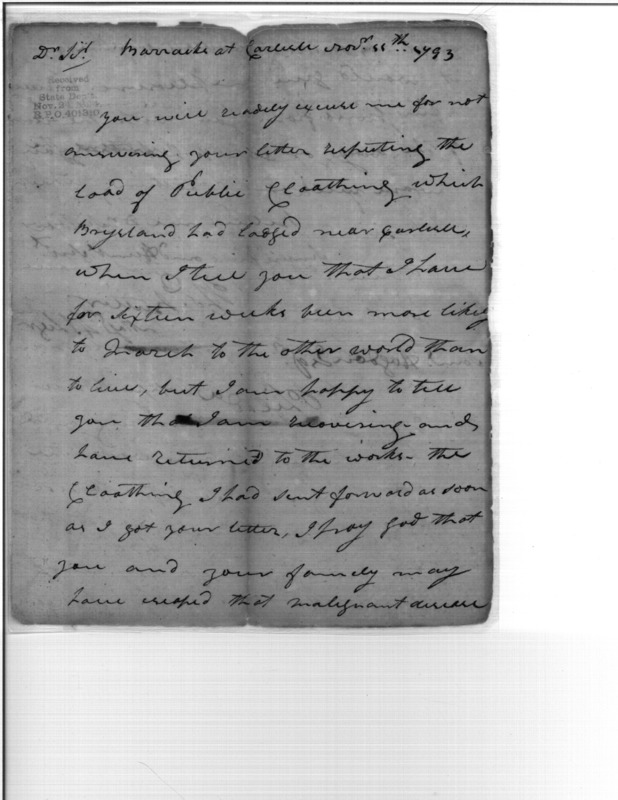 Dr Sir Barracks at Carlisle Novr 11th 1793
Received
from
State Dept.
Nov. 2
R.P.O. 401310
you will readily excuse me for not
answering your letter respecting the
load of Public Cloathing which
Bryland had lodged near Carlisle,
when I tell you that I have
for sixteen weeks been more likely
to March to the other world than
to live, but I am happy to tell
you that I am recovering and
have returned to the works - the
Cloathing I had sent forward as soon
as I got your letter, I pray god that
you and your family may
have escaped that malignant disease